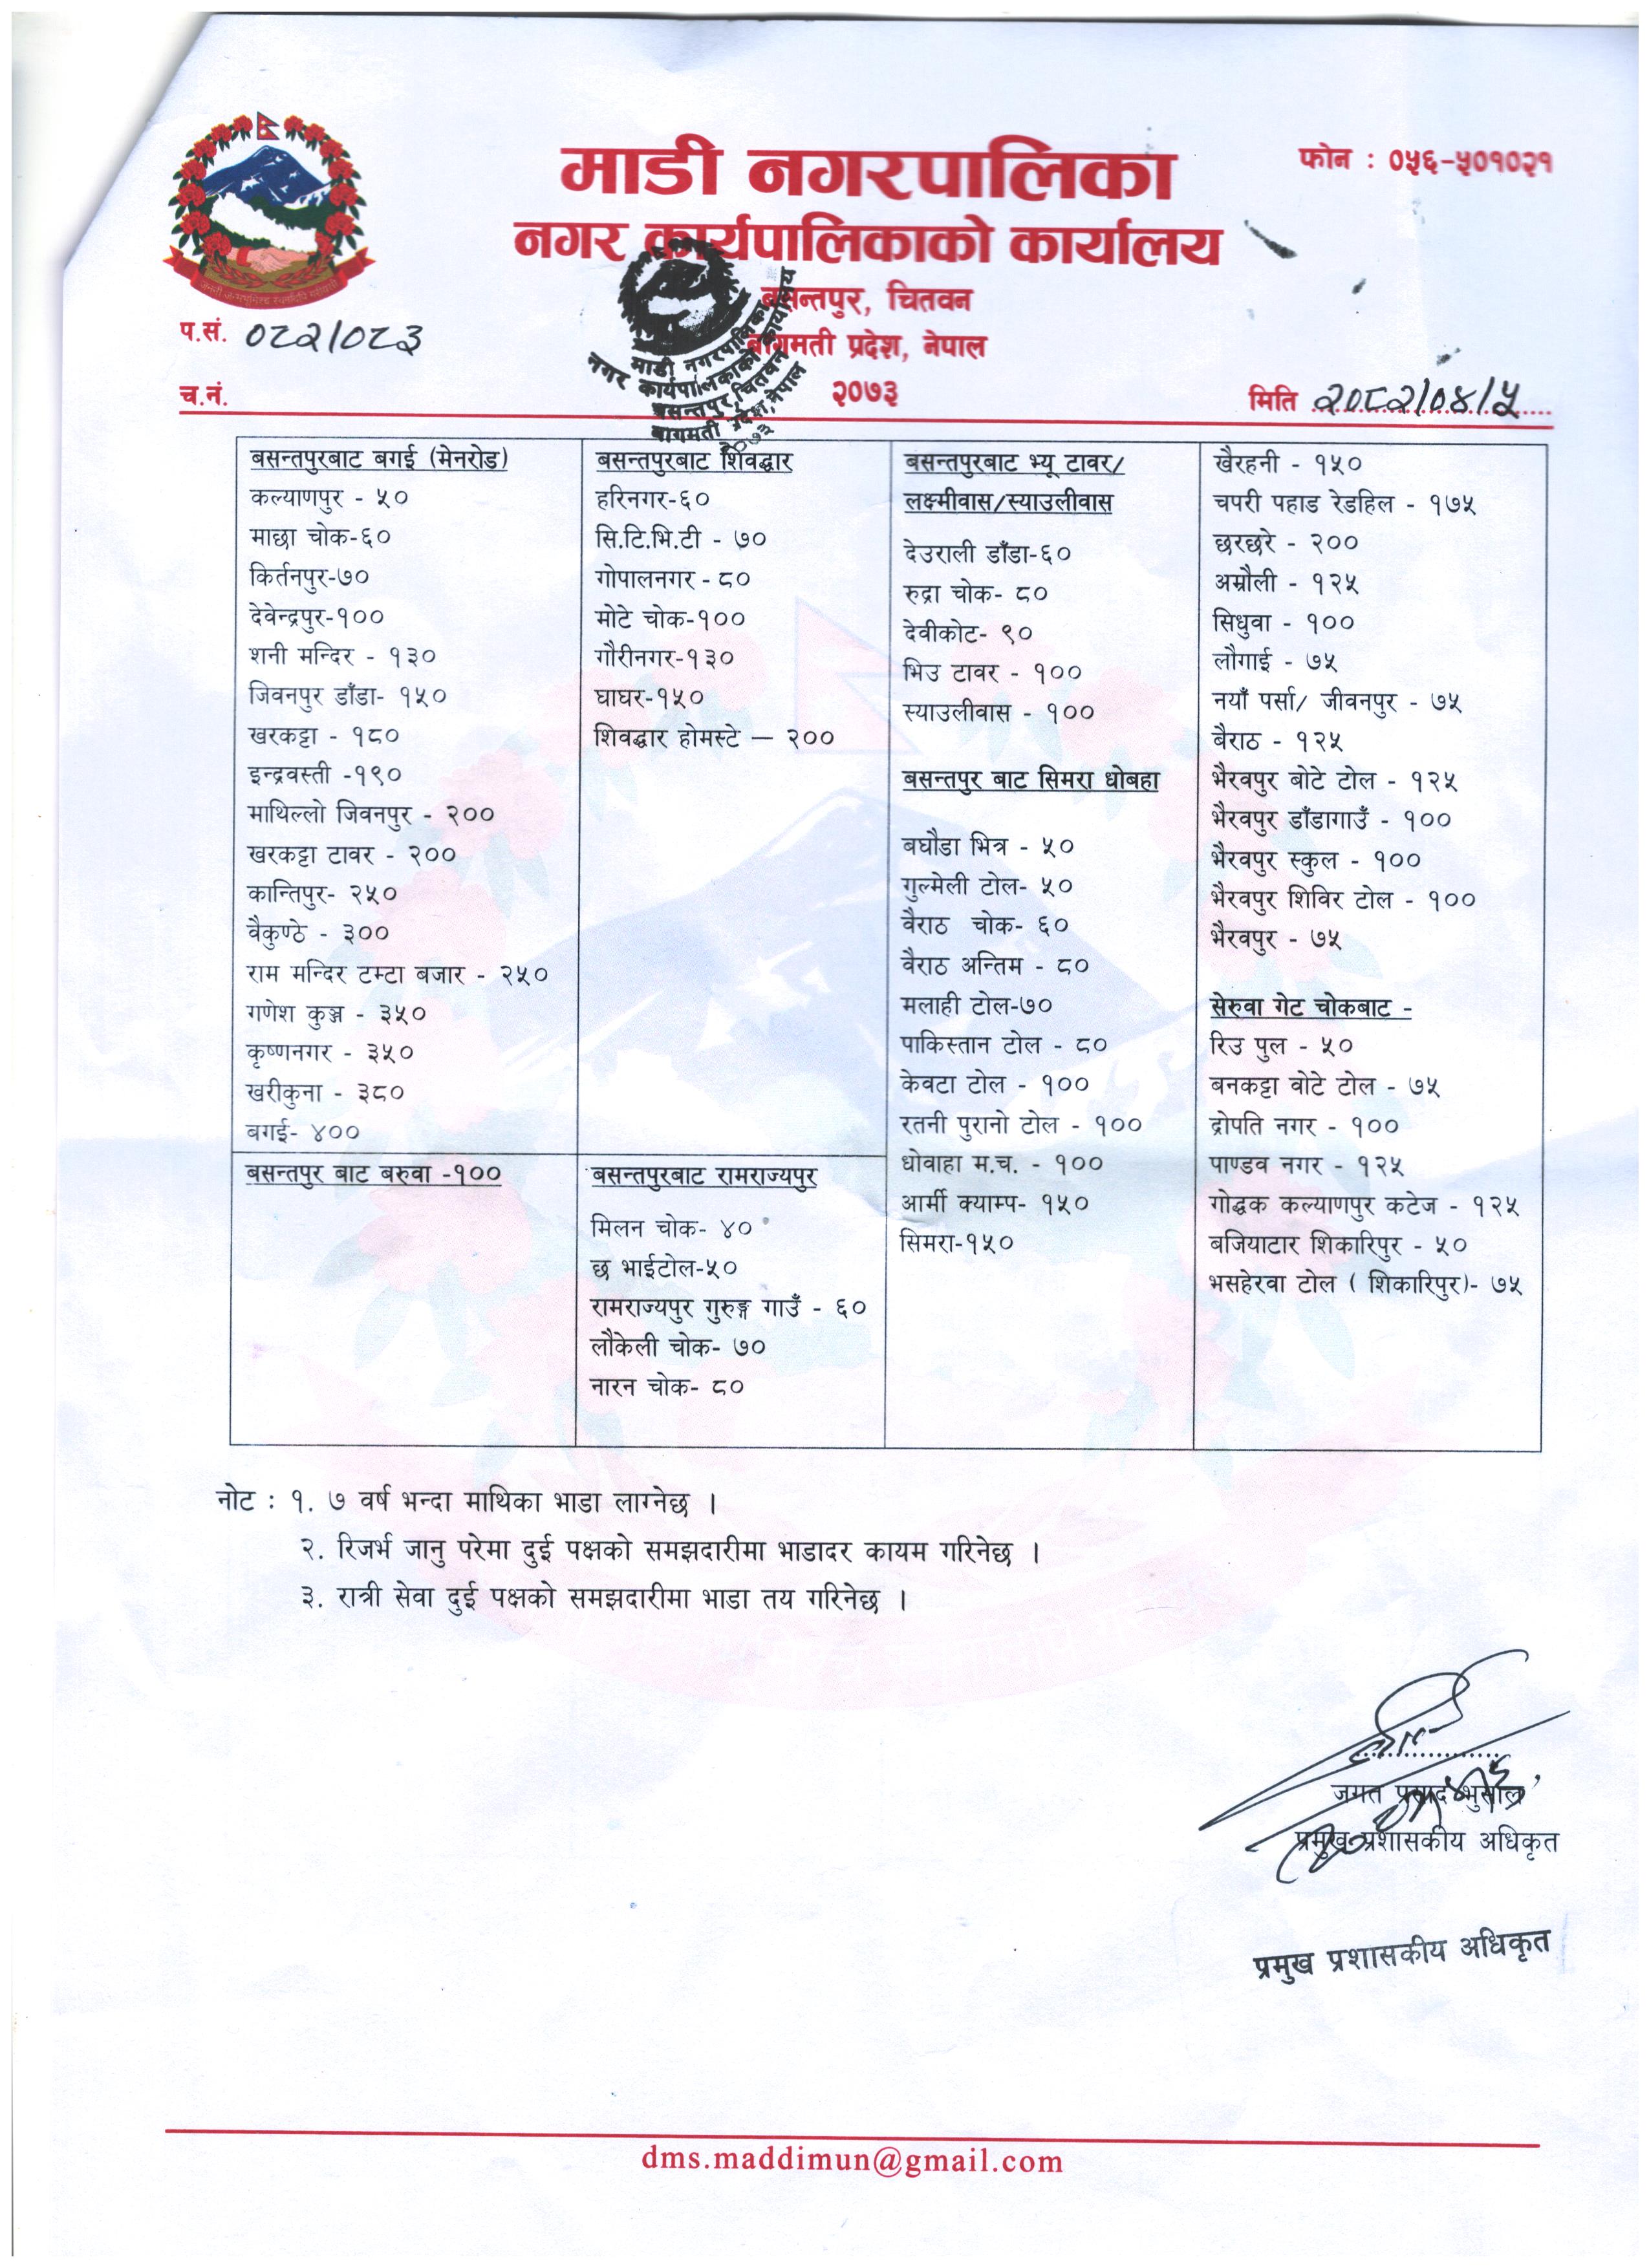 माडी नगरपालिका
फोन : ०५६-५०१०२१
नगर कार्यपालिकाको कार्यालय
बसन्तपुर, चितवन
बागमती प्रदेश, नेपाल
२०७३
प.सं. ०८२/०८३
च.नं.
मिति २०८२/०४/५
माडी नगरपालिका
नगर कार्यपालिकाको कार्यालय
बसन्तपुर, चितवन
बागमती प्रदेश, नेपाल
२०७३
बसन्तपुरबाट बगई (मेनरोड)
कल्याणपुर - ५०
माछा चोक-६०
किर्तनपुर-७०
देवेन्द्रपुर-१००
शनी मन्दिर - १३०
जिवनपुर डाँडा- १५०
खरकट्टा - १८०
इन्द्रवस्ती -१९०
माथिल्लो जिवनपुर - २००
खरकट्टा टावर - २००
कान्तिपुर- २५०
वैकुण्ठे - ३००
राम मन्दिर टम्टा बजार - २५०
गणेश कुञ्ज - ३५०
कृष्णनगर - ३५०
खरीकुना - ३८०
बगई- ४००
बसन्तपुर बाट बरुवा -१००
बसन्तपुरबाट शिवद्धार
हरिनगर-६०
सि.टि.भि.टी - ७०
गोपालनगर - ८०
मोटे चोक-१००
गौरीनगर-१३०
घाघर-१५०
शिवद्धार होमस्टे – २००
बसन्तपुरबाट रामराज्यपुर
मिलन चोक- ४०
छ भाईटोल-५०
रामराज्यपुर गुरुङ्ग गाउँ - ६०
लौकेली चोक- ७०
नारन चोक- ८०
बसन्तपुरबाट भ्यू टावर/
लक्ष्मीवास/स्याउलीवास
देउराली डाँडा-६०
रुद्रा चोक- ८०
देवीकोट- ९०
भिउ टावर - १००
स्याउलीवास - १००
बसन्तपुर बाट सिमरा धोबहा
बघौडा भित्र - ५०
गुल्मेली टोल- ५०
वैराठ चोक- ६०
वैराठ अन्तिम - ८०
मलाही टोल-७०
पाकिस्तान टोल - ८०
केवटा टोल - १००
रतनी पुरानो टोल - १००
धोवाहा म.च. - १००
आर्मी क्याम्प- १५०
सिमरा-१५०
खैरहनी - १५०
चपरी पहाड रेडहिल - १७५
छरछरे - २००
अम्रौली - १२५
सिधुवा - १००
लौगाई - ७५
नयाँ पर्सा/ जीवनपुर - ७५
बैराठ - १२५
भैरवपुर बोटे टोल - १२५
भैरवपुर डाँडागाउँ - १००
भैरवपुर स्कुल - १००
भैरवपुर शिविर टोल - १००
भैरवपुर - ७५
सेरुवा गेट चोकबाट -
रिउ पुल - ५०
बनकट्टा वोटे टोल - ७५
द्रोपति नगर - १००
पाण्डव नगर - १२५
गोद्धक कल्याणपुर कटेज - १२५
बजियाटार शिकारिपुर - ५०
भसहेरवा टोल ( शिकारिपुर)- ७५
नोट : १. ७ वर्ष भन्दा माथिका भाडा लाग्नेछ ।
२. रिजर्भ जानु परेमा दुई पक्षको समझदारीमा भाडादर कायम गरिनेछ ।
३. रात्री सेवा दुई पक्षको समझदारीमा भाडा तय गरिनेछ ।
जगत प्रसाद भुसाल
प्रमुख प्रशासकीय अधिकृत
प्रमुख प्रशासकीय अधिकृत
dms.maddimun@gmail.com